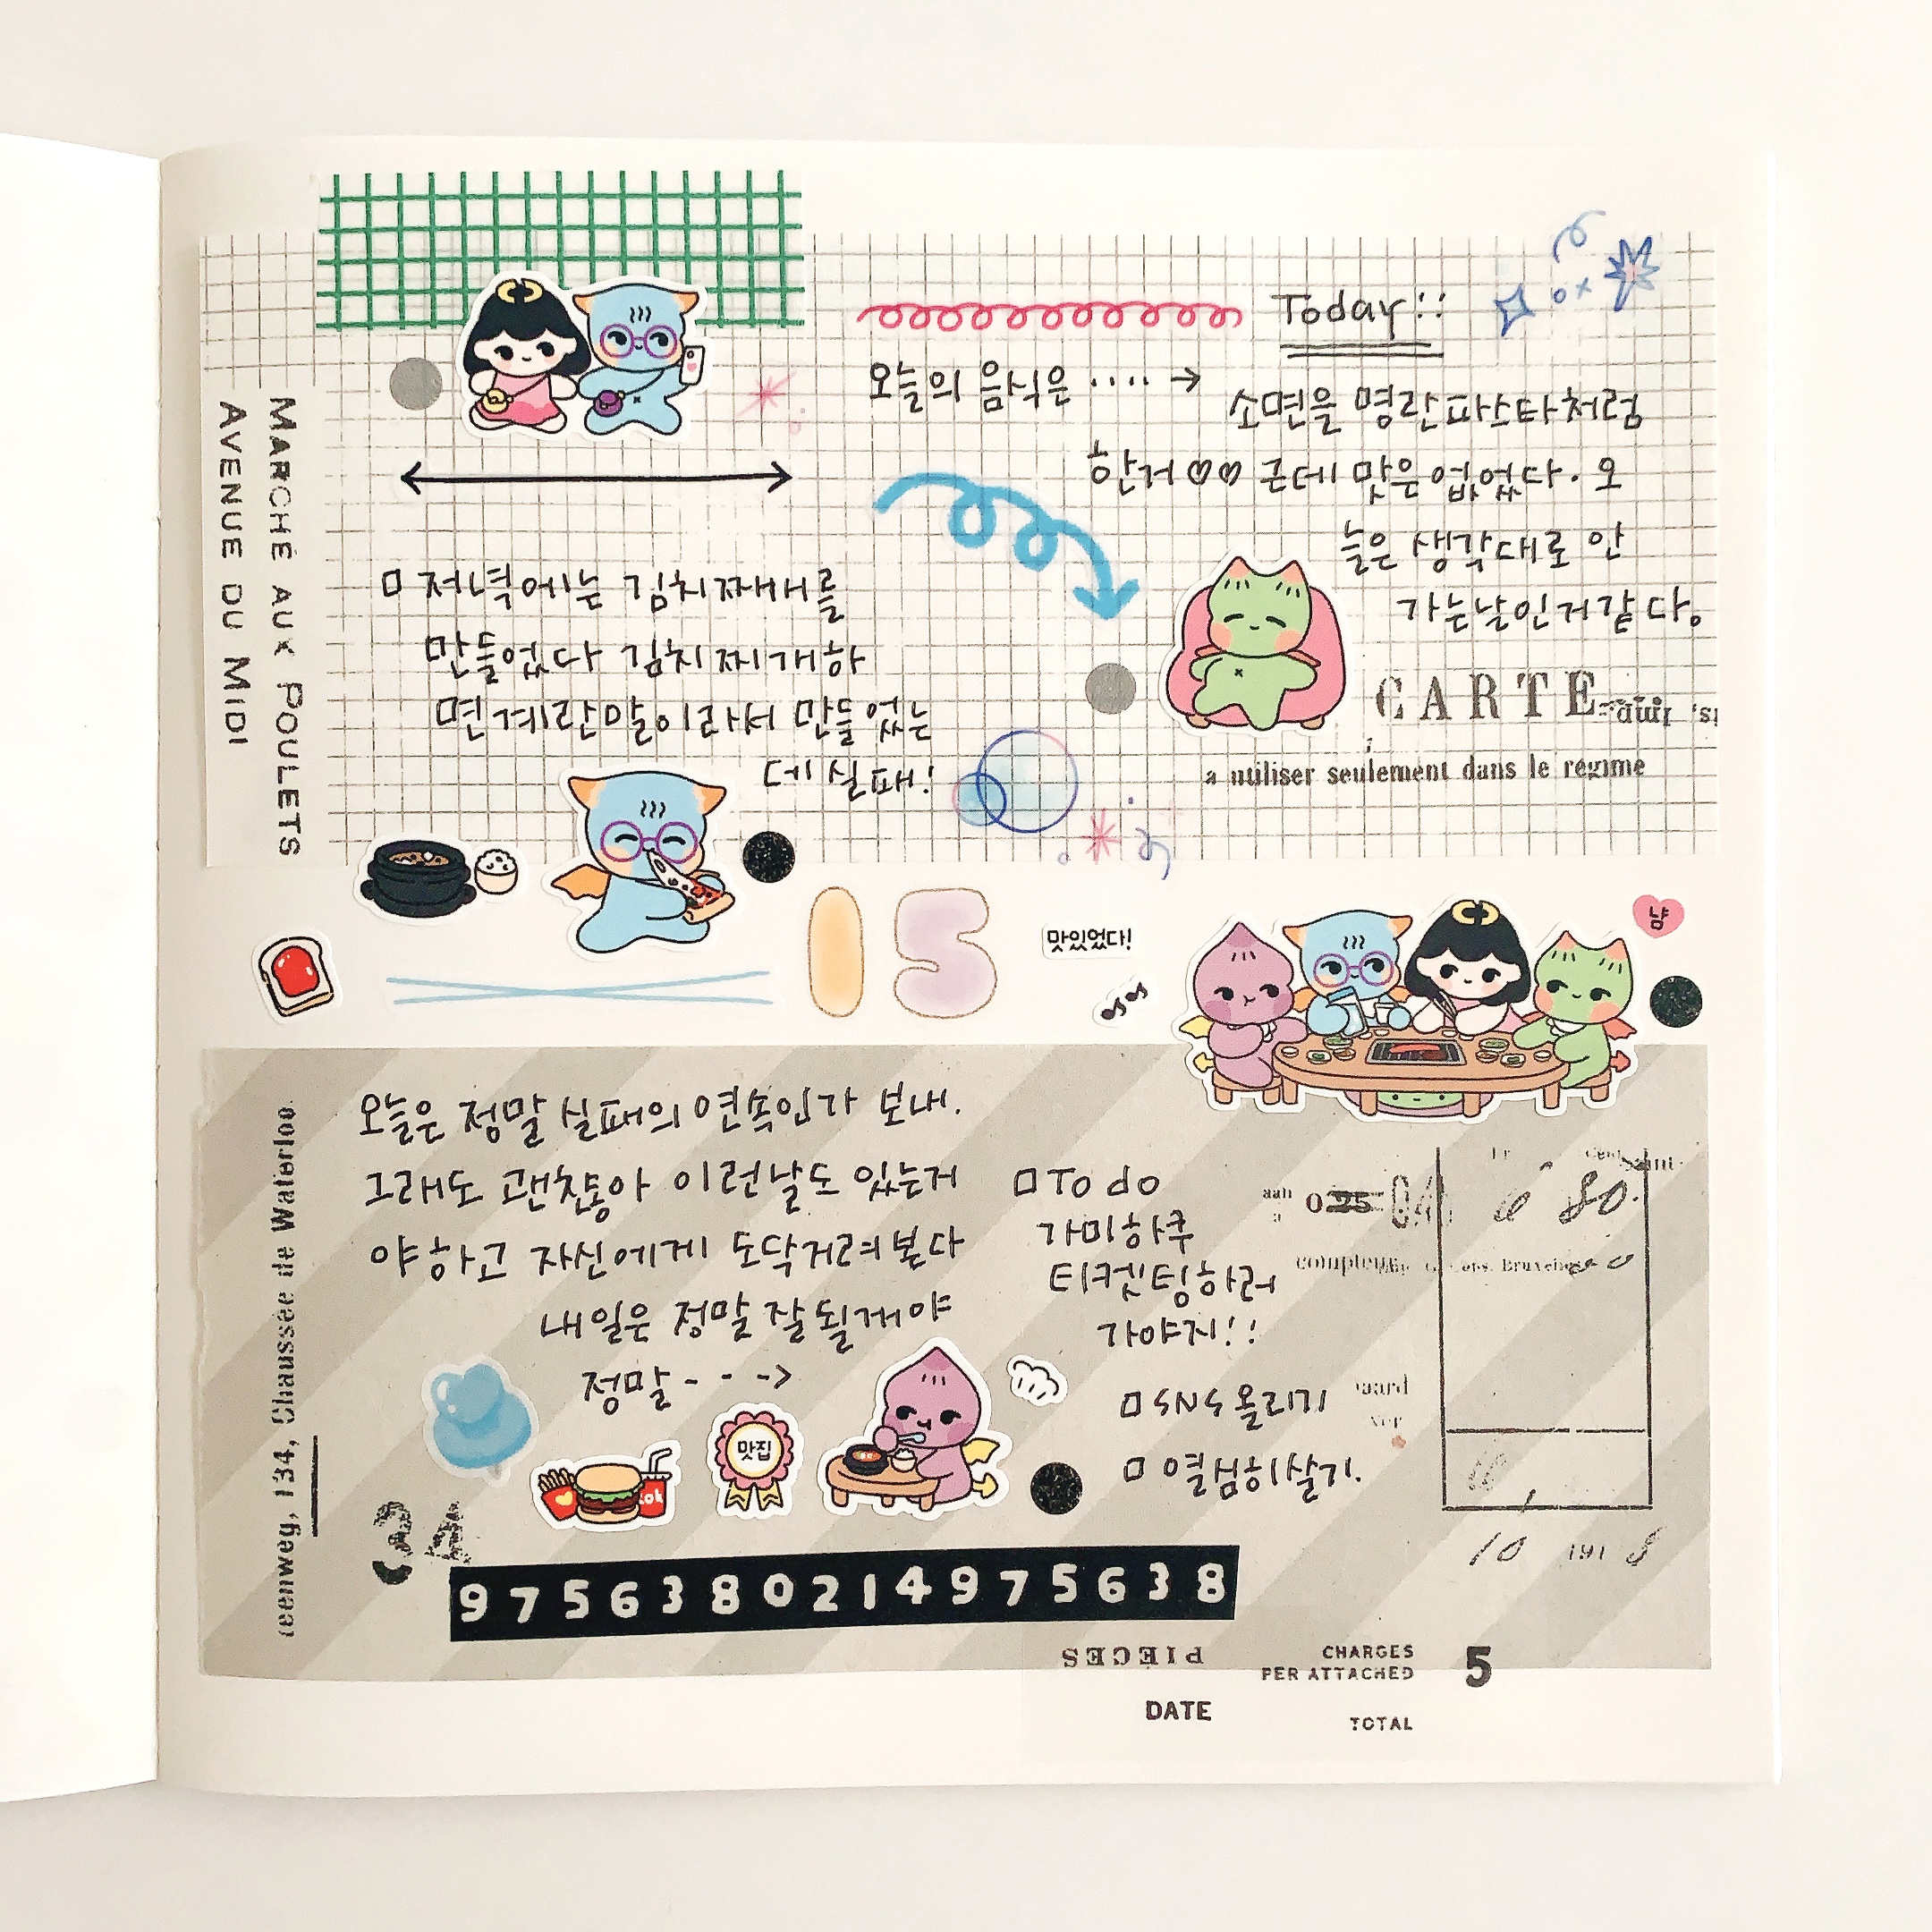 Today!!
오늘의 음식은 ····· →
소면을 명란파스타처럼
한거♡♡ 근데 맛은 없었다. 오
늘은 생각대로 안
가는날인거같다。
CARTE
a utiliser seulement dans le régime
MARCHÉ AUX POULETS
AVENUE DU MIDI
□ 저녁에는 김치찌개를
만들었다 김치찌개하
면계란말이라서 만들었는
데실패!
15
맛있었다!
냠
오늘은 정말 실패의 연속인가 보내.
그래도 괜찮아 이런날도 있는거
야하고 자신에게 도닥거려본다
내일은 정말 잘될게야
정말- - - ->
□ To do
가미하쿠
티켓팅하러
가야지!!
□ SNS 올리기
□ 열심히살기.
맛집
teenweg, 134, Chaussée de Waterloo.
34
9756380214975638
PIECES
CHARGES
PER ATTACHED 5
DATE
TOTAL
aan
0 25
80.
10 191 8